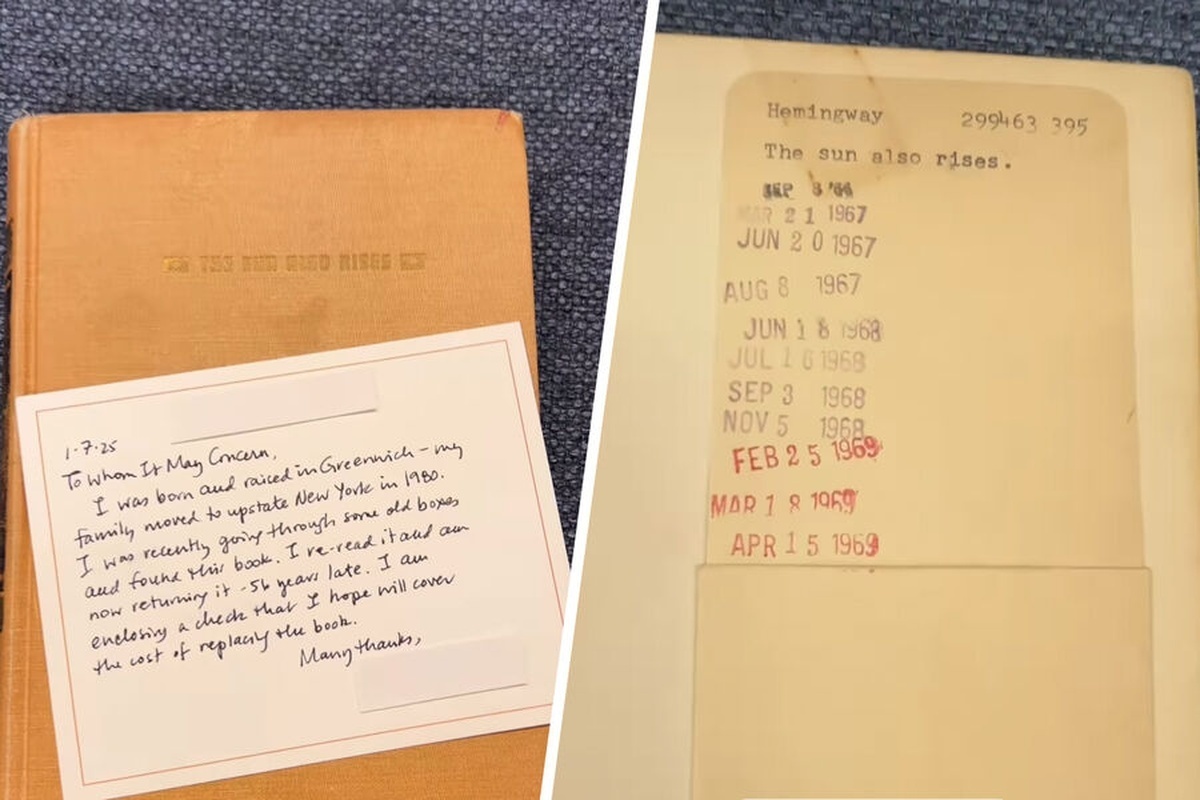 THE SUN ALSO RISES
1-7-25
To Whom It May Concern,
I was born and raised in Greenwich - my
family moved to upstate New York in 1980.
I was recently going through some old boxes
and found this book. I re-read it and am
now returning it - 56 years late. I am
enclosing a check that I hope will cover
the cost of replacing the book.
Many thanks,
Hemingway 299463 395
The sun also rises.
SEP 8 '66
MAR 21 1967
JUN 20 1967
AUG 8 1967
JUN 18 1968
JUL 16 1968
SEP 3 1968
NOV 5 1968
FEB 25 1969
MAR 18 1969
APR 15 1969